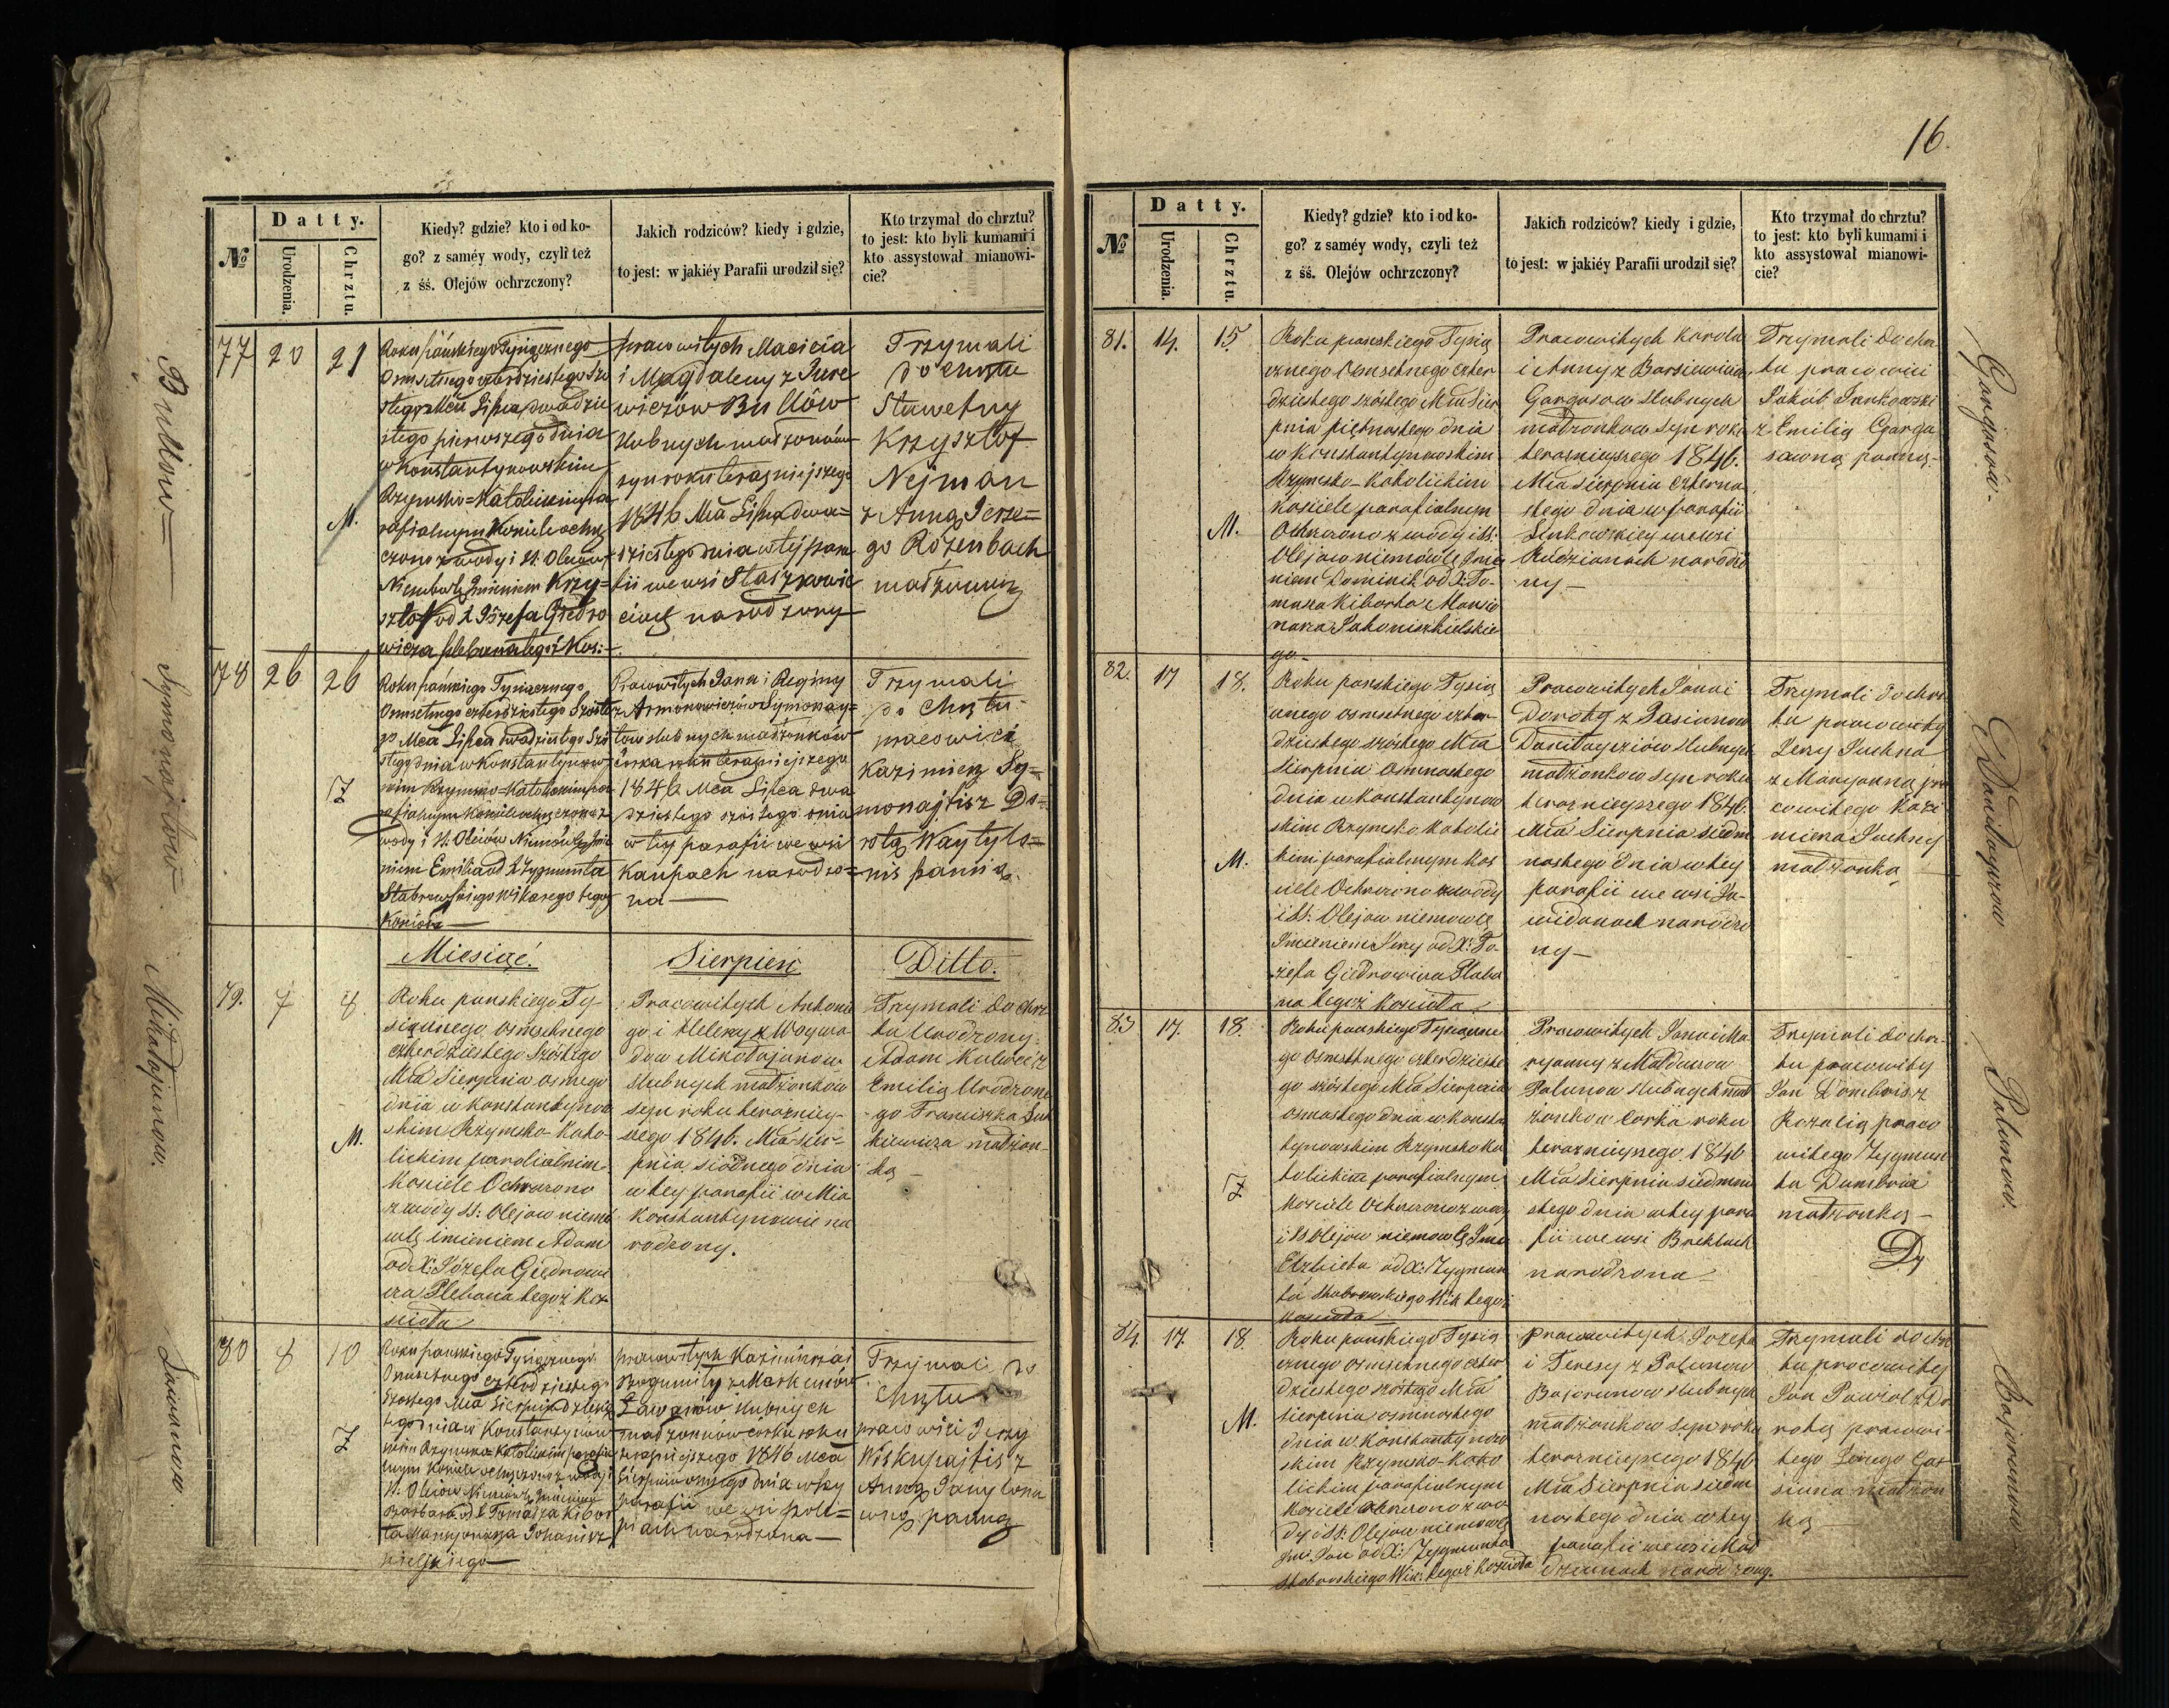 16.
№
Datty.
Urodzenia.
Chrztu.
Kiedy? gdzie? kto i od ko-
go? z saméy wody, czyli też
z śś. Olejów ochrzczony?
Jakich rodziców? kiedy i gdzie,
to jest: w jakiéy Parafii urodził się?
Kto trzymał do chrztu?
to jest: kto byli kumami i
kto assystował mianowi-
cie?
Bullow=
77
20
21
M.
Roku pańskiego Tysiącznego
Osmsetnego czterdziestego Szo
stego Mca Lipca dwadzie
stego pierwszego dnia
w Konstantynowskim
Rzymsko=Katolickim pa
rafialnym Kościele ochrz
czono z wody i SS. Olejów
Niemowle Imieniem Krzy=
sztof od X Józefa Giedro
wicza plebana tegoż Kos:
pracowitych Macieja
i Magdaleny z Jure
wiczów Bullów
slubnych małżonków
syn roku teraźniejszego
1846 Mca Lipca dwa=
dziestego dnia w tej para
fii we wsi Staszkowie
narodzony
Trzymali
do chrztu
Sławetny
Krzysztof
Nejman
z Anną Jerze=
go Rozenbach
małżonką
Symonajtow
78
26
26
Ż
Roku pańskiego Tysiącznego
Osmsetnego czterdziestego Szoste
go Mca Lipca dwadziestego Szo
stego dnia w Konstantynow
skim Rzymsko=Katolickim pa
rafialnym Kościele ochrzczono z
wody i SS. Olejów Niemowle Imie
niem Emilia od X Zygmunta
Stabrowskiego Wikarego tegoż
Kościoła
Pracowitych Jana i Reginy
z Armonowiczów Symonay=
tow slubnych małżonków
córka roku teraźniejszego
1846 Mca Lipca dwa
dziestego szostego dnia
w tej parafii we wsi
Kaupach narodzo=
na
Trzymali
do Chrztu
pracowici
Kazimierz Sy=
monajtis z Do=
rotą Waytylo=
nis panną.
Miesiąć.
Sierpień
Ditto.
Mikołajunow.
79.
7
8
M.
Roku panskiego Ty-
siącznego osmsetnego
czterdziestego Szóstego
Mca Sierpnia osmego
dnia w Konstantynow
skim Rzymsko-Kato-
lickim parafialnim
Kosciele Ochrzczono
z wody SS: Olejow niemo
wlę imieniem Adam
od X: Józefa Giedrowi
cza Plebana tegoż Ko-
scioła
Pracowitych Antonie
go i Heleny z Woywo
dow Mikołajunow
slubnych małżonkow
syn roku teraźniey-
szego 1846. Mca Sier-
pnia siodmego dnia
w tey parafii w Mia
Konstantynowie na
rodzony.
Trzymali do chrz
tu Urodzony
Adam Kulwiec z
Emilią Urodzone
-go Franciszka
małżon-
ką -
Lawanow
80
8
10
Ż
Roku pańskiego Tysiącznego
Osmsetnego czterdziestego
Szostego Mca Sierpnia dziesią
tego dnia w Konstantynow
skim Rzymsko=Katolickim parafia
lnym Kościele ochrzczono z wody i
SS. Olejow Niemowle Imieniem
Barbara od X Tomasza Kibor
ta Mansjonarza Johanisz
kielskiego
pracowitych Kazimierza i
Bogumiły z
Lawanow slubnych
małżonków córka roku
teraźniejszego 1846 Mca
Sierpnia osmego dnia w tey
parafii we wsi
narodzona
Trzymali do
Chrztu
pracowici Jerzy
Wiskupajtis z
Anną
wną panną
№
Datty.
Urodzenia.
Chrztu.
Kiedy? gdzie? kto i od ko-
go? z saméy wody, czyli też
z śś. Olejów ochrzczony?
Jakich rodziców? kiedy i gdzie,
to jest: w jakiéy Parafii urodził się?
Kto trzymał do chrztu?
to jest: kto byli kumami i
kto assystował mianowi-
cie?
81.
14.
15.
M.
Roku panskiego Tysią
cznego Osmsetnego czter
dziestego szóstego Mca Sier
pnia piętnastego dnia
w Konstantynowskim
Rzymsko-Katolickim
Kosciele parafialnym
Ochrzczono z wody i SS:
Olejow niemówlę Imie
niem Dominik od X: To-
masza Kiborta Mansio
narza Johaniszkielskie
go
Pracowitych Karola
i Anny z
Gargasow slubnych
małżonkow syn roku
teraźnieyszego 1846.
Mca Sierpnia czterna
stego dnia w parafii
we wsi
narodzo
ny -
Trzymali do chrz
tu pracowici
Jakób Jankowski
z Emilią Garga
sowną panną -
Gargasów.
82.
17
18.
M.
Roku panskiego Tysią
cznego osmsetnego czter
dziestego szóstego Mca
Sierpnia osmnastego
dnia w Konstantynow
skim Rzymsko Katolic
kim parafialnym Kos
ciele Ochrzczono z wody
i SS: Olejow niemowlę
Imieniem Jerzy od X: Jo-
zefa Giedrowicza Pleba
na tegoż Koscioła.
Pracowitych Jana i
Doroty z
slubnych
małżonkow syn roku
teraźnieyszego 1846.
Mca Sierpnia siedm
nastego dnia w tey
parafii we wsi
narodzo
ny -
Trzymali do chrz
tu pracowity
Jerzy Suchna
z Maryanną pra
cowitego Kazi
mierza Suchny
małżonką
83
17.
18.
Ż
Roku panskiego Tysiączne
go osmsetnego czterdzieste
go szóstego Mca Sierpnia
osmnastego dnia w Konsta
tynowskim Rzymsko Ka
tolickim parafialnym
Kosciele Ochrzczono z wody
i SS Olejow niemowlę Imie
Elżbieta od X: Zygmun
ta Stabrowskiego Wik tegoż
Koscioła
Pracowitych Jana i Ma
ryanny z
Palunow slubnych mał
żonkow Corka roku
teraźnieyszego 1846
Mca Sierpnia siedmna
stego dnia w tey para
fii we wsi
narodzona.
Trzymali do chrz-
tu pracowity
Jan z
Rozalią praco
witego Zygmun
ta
małżonką -
Palunow.
84.
17.
18
M.
Roku panskiego Tysią
cznego osmsetnego czter
dziestego szóstego Mca
sierpnia osmnastego
dnia w Konstantynow
skim Rzymsko-Kato
lickim parafialnym
Kosciele Ochrzczono z wo
dy i SS: Olejow niemowlę
Im: Jan od X: Zygmunta
Stabrowskiego Wik: tegoż Koscioła
Pracowitych Jozefa
i Teresy z Palunow
Bajorunow slubnych
małżonkow syn roku
teraźnieyszego 1846
Mca Sierpnia siedm
nastego dnia w tey
parafii we wsi
narodzony.
Trzymali do chrz
tu pracowity
Jan z Do
rotą pracowi-
tego
małżon
ką
Bajorunow